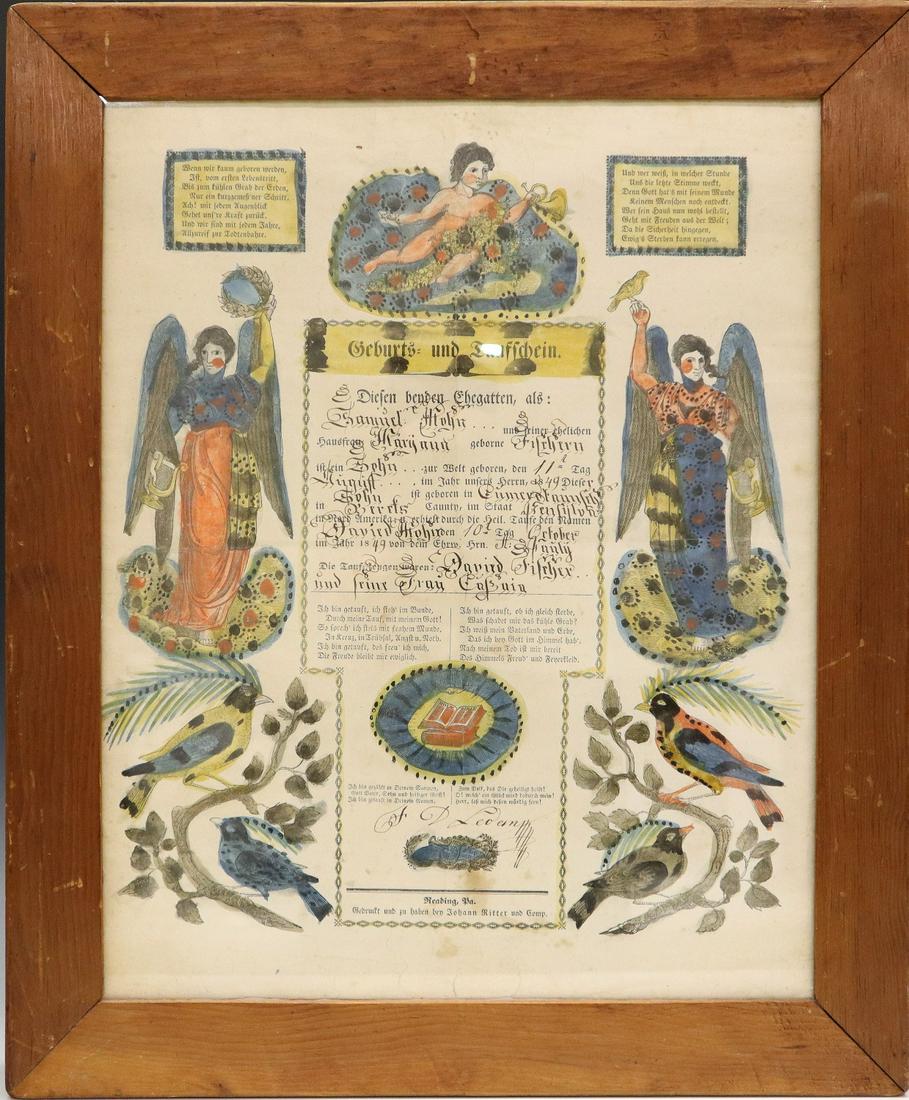 Wenn wir kaum geboren werden,
Ist, vom ersten Lebenstritt,
Bis zum kühlen Grab der Erden,
Nur ein kurzgemeß'ner Schritt.
Ach! mit jedem Augenblick
Gehet uns're Kraft zurück,
Und wir sind mit jedem Jahre,
Allzureif zur Todtenbahre.
Und wer weiß, in welcher Stunde
Uns die letzte Stimme weckt,
Denn Gott hat's mit seinem Munde
Keinem Menschen noch entdeckt.
Wer sein Haus nun wohl bestellt,
Geht mit Freuden aus der Welt;
Da die Sicherheit hingegen,
Ewig's Sterben kann erregen.
Geburts- und Taufschein.
Diesen beyden Ehegatten, als:
Samuel Mohn ... und seiner ehelichen
Hausfrau Maryann geborne Fischern
ist ein Sohn ... zur Welt geboren, den 11t Tag
August .... im Jahr unsers Herrn, 1849 Dieser
Sohn ist geboren in Cumru Taunschip
in Berks Caunty, im Staat Pensilva
in Nord Amerika, u. erhielt durch die Heil. Taufe den Namen
David Mohn den 10t Tag October
im Jahr 1849 von dem Ehrw. Hrn. Pauly
Die Taufzeugen waren: David Fischer ..
und seine Frau
Ich bin getauft, ich steh' im Bunde,
Durch meine Tauf, mit meinem Gott!
So sprech' ich stets mit frohem Munde.
In Kreuz, in Trübsal, Angst u. Noth.
Ich bin getauft, deß freu' ich mich,
Die Freude bleibt mir ewiglich.
Ich bin getauft, ob ich gleich sterbe,
Was schadet mir das kühle Grab?
Ich weiß mein Vaterland und Erbe,
Das ich bey Gott im Himmel hab'.
Nach meinem Tod ist mir bereit
Des Himmels Freud' und Feyerkleid.
Ich bin gezählt zu Deinem Saamen,
Gott Vater, Sohn und heil'ger Geist!
Ich bin getauft in Deinem Namen,
Zum Volk, das Dir geheiligt heißt!
O! welch' ein Glück wird dadurch mein!
Herr, laß mich dessen würdig seyn!
Reading, Pa.
Gedruckt und zu haben bey Johann Ritter und Comp.